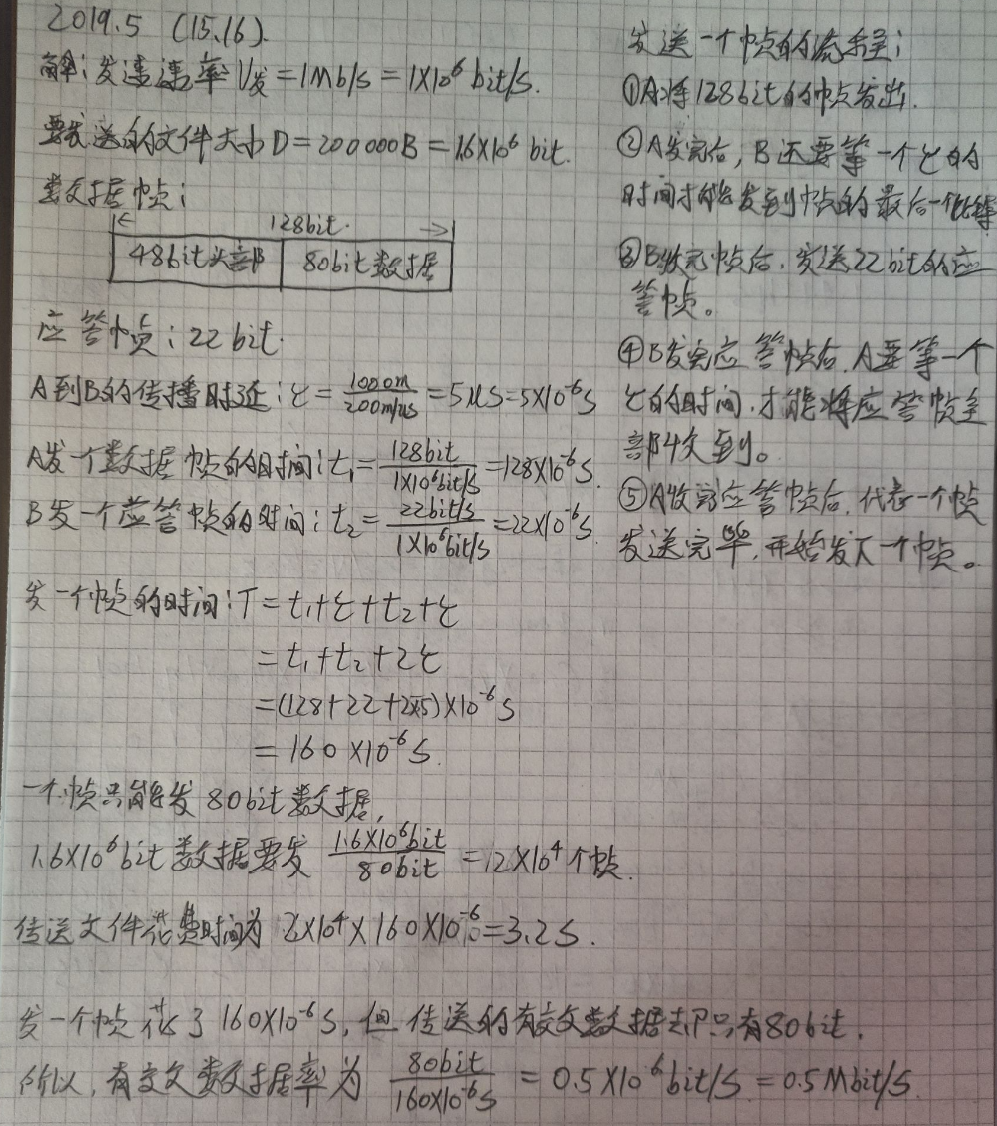 2019.5 (15,16).
解:发送速率V发=1Mb/s=1×10⁶bit/s.
要发送的文件大小D=200000B=1.6×10⁶bit.
数据帧:
128bit.
48bit头部 80bit数据
应答帧:22bit.
A到B的传播时延:τ=1000m/200m/us=5us=5×10⁻⁶s
A发一个数据帧的时间:t₁=128bit/1×10⁶bit/s=128×10⁻⁶s.
B发一个应答帧的时间:t₂=22bit/s/1×10⁶bit/s=22×10⁻⁶s.
发一个帧的时间:T=t₁+τ+t₂+τ
=t₁+t₂+2τ
=(128+22+2×5)×10⁻⁶s
=160×10⁻⁶s.
一个帧只能发80bit数据,
1.6×10⁶bit数据要发 1.6×10⁶bit/80bit=2×10⁴个帧.
传送文件花费时间为 2×10⁴×160×10⁻⁶=3.2s.
发一个帧花了160×10⁻⁶s,但传送的有效数据却只有80bit.
所以,有效数据率为 80bit/160×10⁻⁶s=0.5×10⁶bit/s=0.5Mbit/s.
发送一个帧的流程:
①A将128bit的帧发出.
②A发完后,B还要等一个τ的
时间才能收到帧的最后一个比特
③B收完帧后,发送22bit的应
答帧。
④B发完应答帧后,A要等一个
τ的时间,才能将应答帧全
部收到。
⑤A收完应答帧后,代表一个帧
发送完毕,开始发下一个帧。